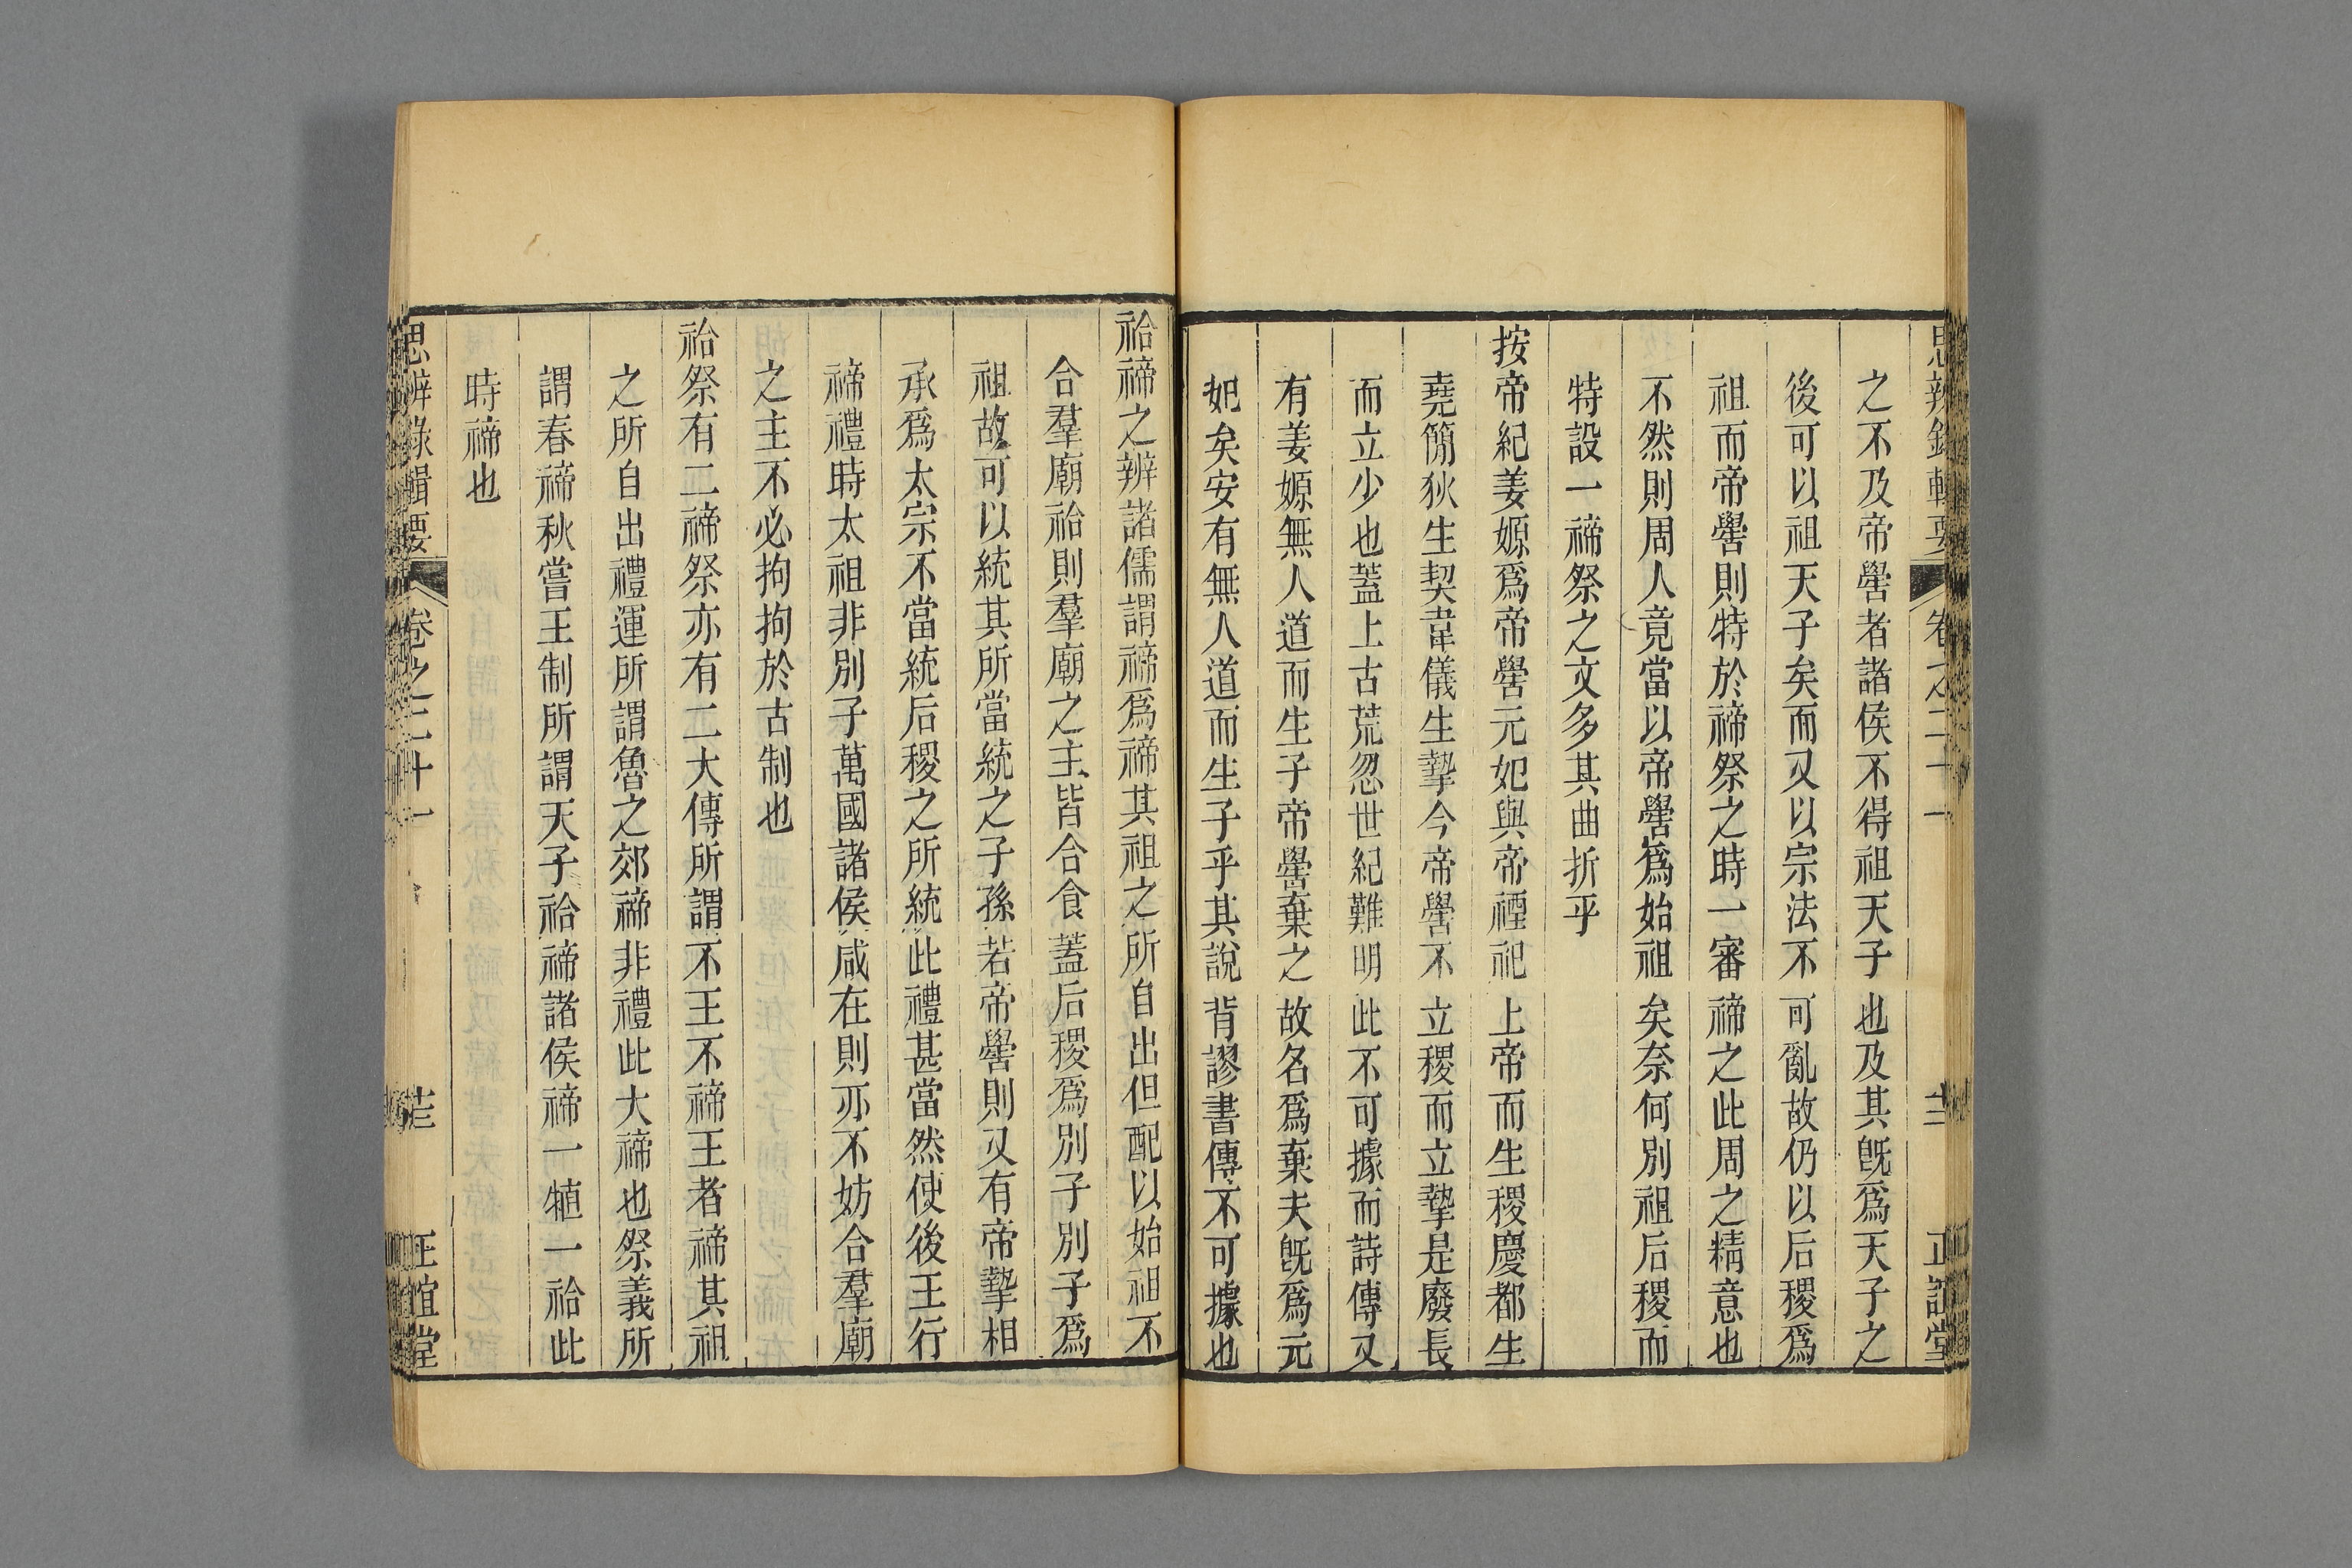 之不及帝嚳者諸侯不得祖天子也及其旣爲天子之
後可以祖天子矣而又以宗法不可亂故仍以后稷爲
祖而帝嚳則特於禘祭之時一審禘之此周之精意也
不然則周人竟當以帝嚳爲始祖矣奈何別祖后稷而
特設一禘祭之文多其曲折乎
按帝紀姜嫄爲帝嚳元妃與帝禋祀上帝而生稷慶都生
堯簡狄生契韋儀生摯今帝嚳不立稷而立摯是廢長
而立少也蓋上古荒忽世紀難明此不可據而詩傳又
有姜嫄無人道而生子帝嚳棄之故名爲棄夫旣爲元
妃矣安有無人道而生子乎其說背謬書傳不可據也
祫禘之辨諸儒謂禘爲禘其祖之所自出但配以始祖不
合羣廟祫則羣廟之主皆合食蓋后稷爲別子別子爲
祖故可以統其所當統之子孫若帝嚳則又有帝摯相
承爲太宗不當統后稷之所統此禮甚當然使後王行
禘禮時太祖非別子萬國諸侯咸在則亦不妨合羣廟
之主不必拘拘於古制也
祫祭有二禘祭亦有二大傳所謂不王不禘王者禘其祖
之所自出禮運所謂魯之郊禘非禮此大禘也祭義所
謂春禘秋嘗王制所謂天子祫禘諸侯禘一犆一祫此
時禘也
思辨錄輯要
卷之二十一
正誼堂